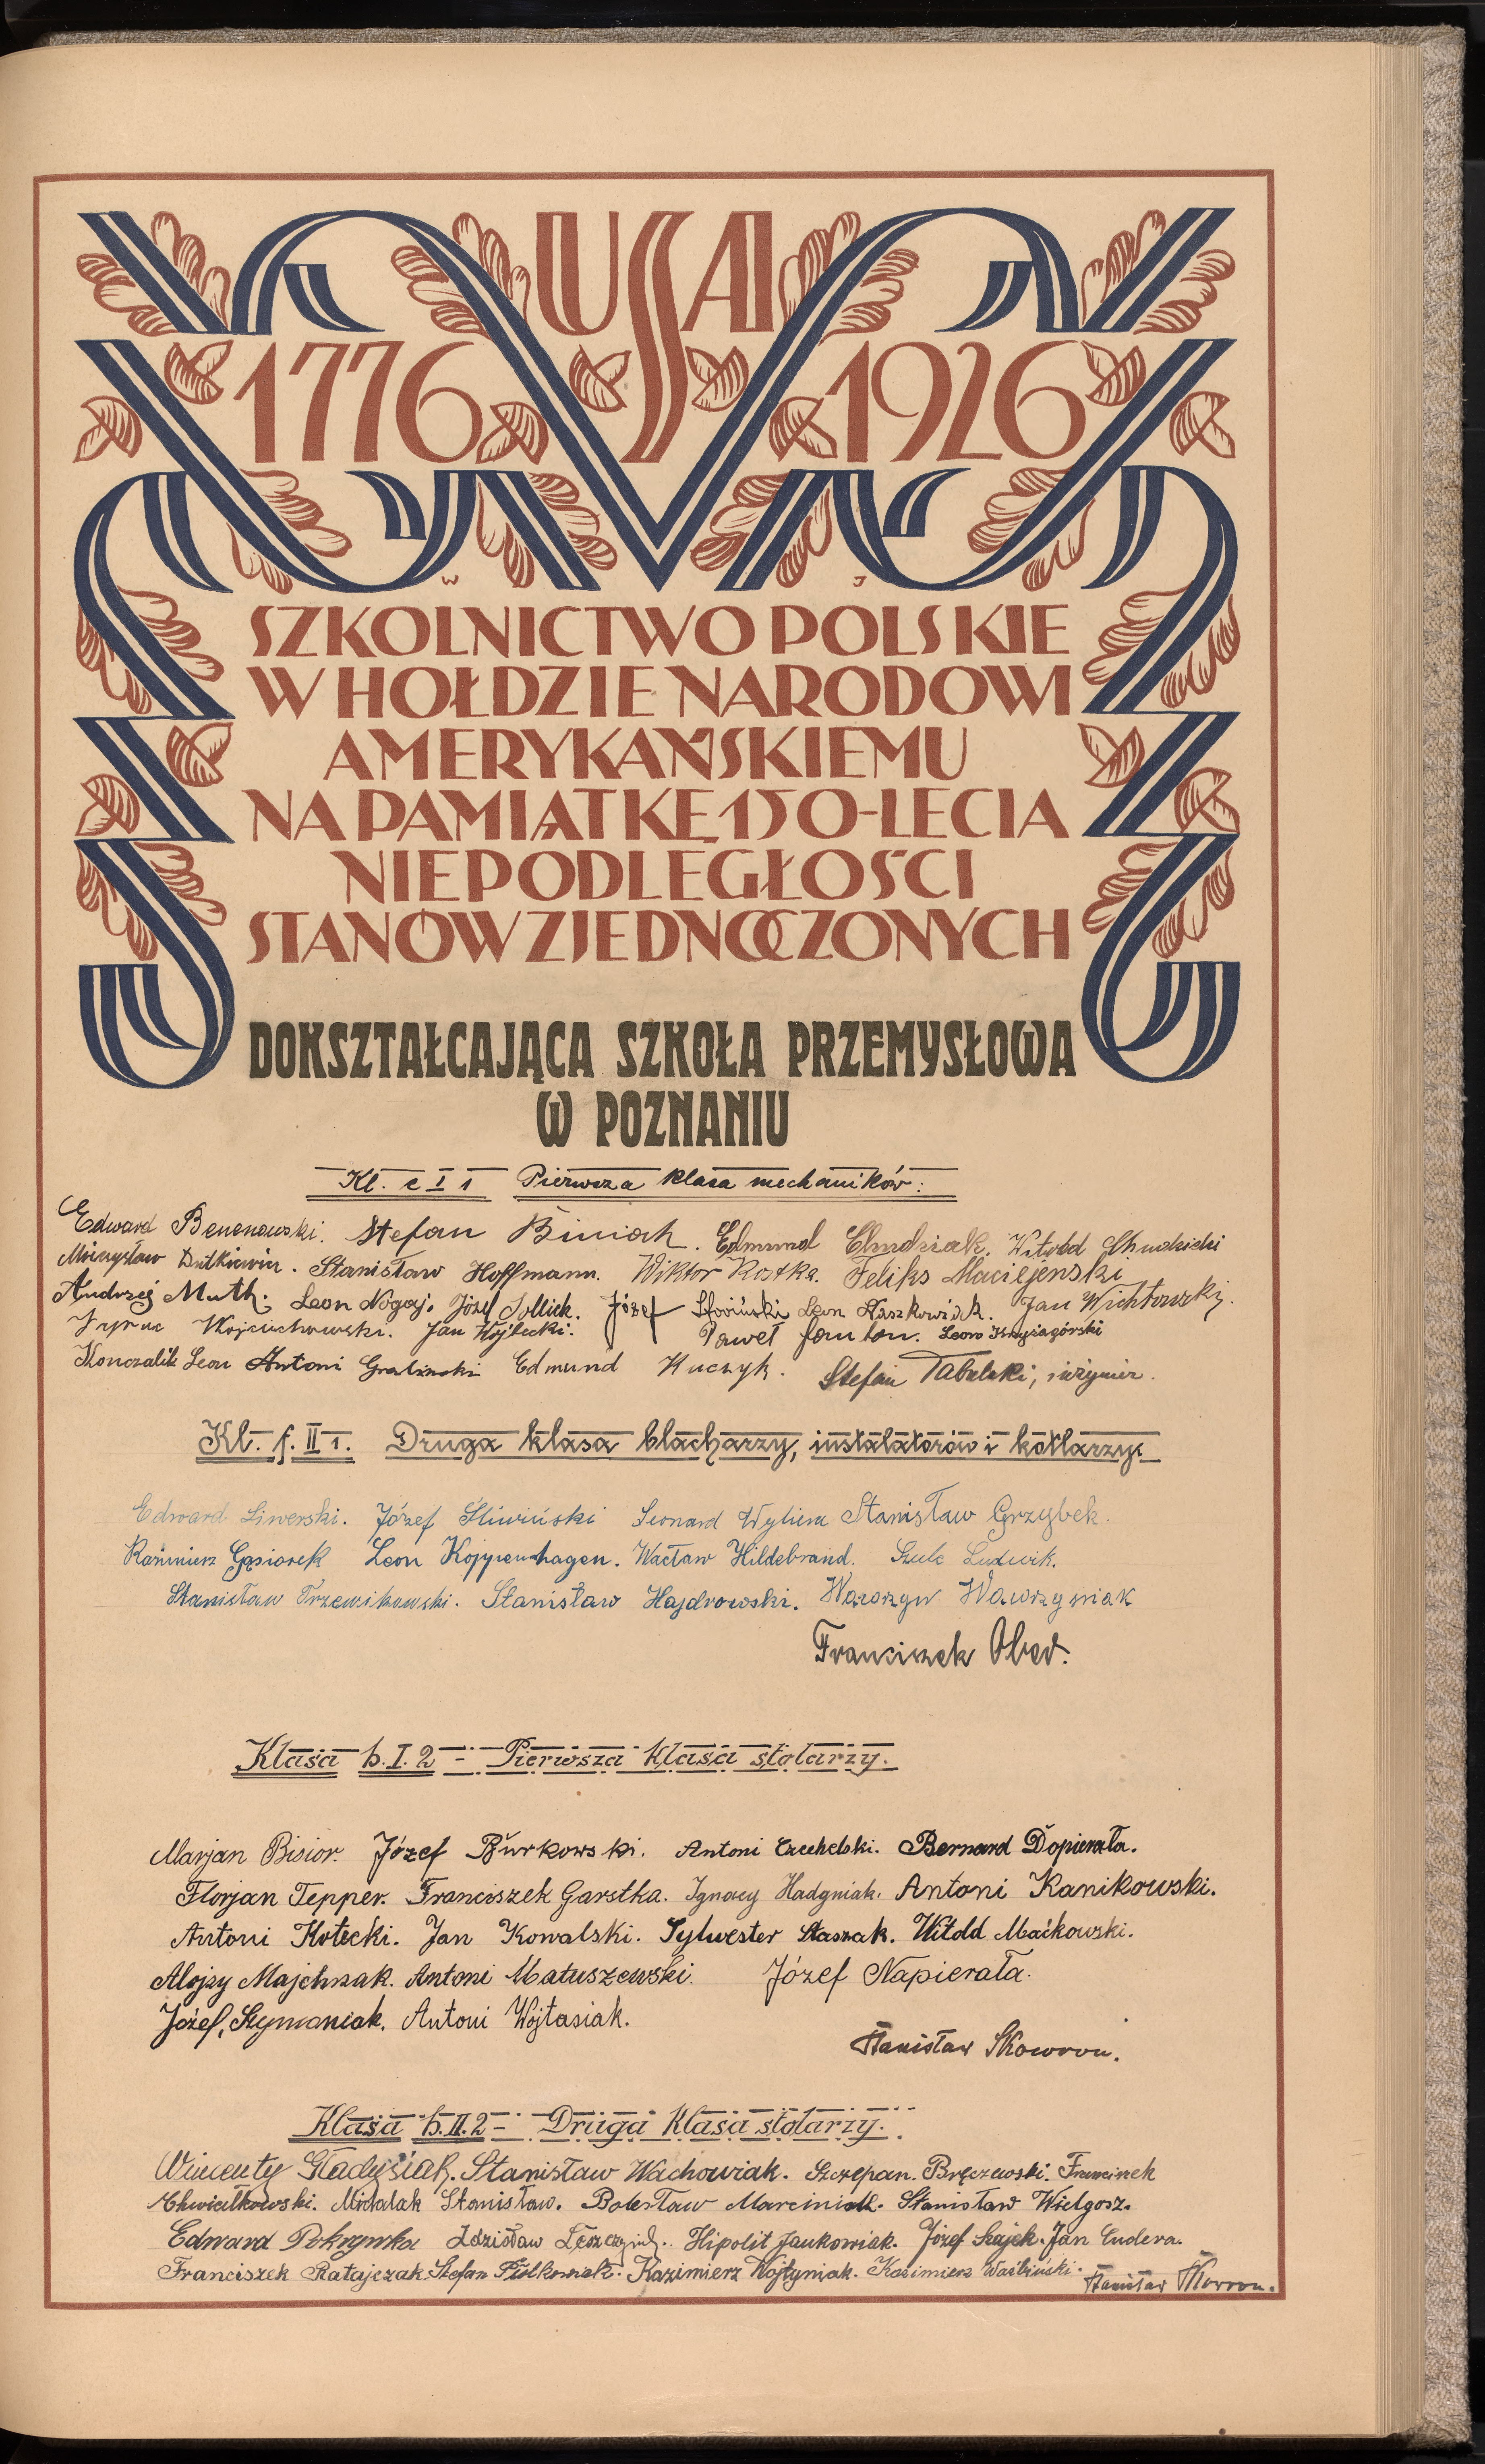 USA
1776 1926
W J
SZKOLNICTWO POLSKIE
W HOŁDZIE NARODOWI
AMERYKAŃSKIEMU
NA PAMIĄTKĘ 150-LECIA
NIEPODLEGŁOŚCI
STANÓW ZJEDNOCZONYCH
DOKSZTAŁCAJĄCA SZKOŁA PRZEMYSŁOWA
W POZNANIU
Kl. e I 1 Pierwsza klasa mechaników.
Edward Benenowski. Stefan Biniak. Edmund Chudziak. Witold Chudzicki
Mieczysław Dutkiewicz. Stanisław Hoffmann. Wiktor Kostka. Feliks Maciejewski
Andrzej Muth. Leon Nogaj. Józef Józef Słowiński Leon Staszkowiak. Jan Wichtowski.
Wojciechowski. Jan Wójtecki. Paweł Leon Książagórski
Konczalik Leon Antoni Graliński Edmund Kuczyk. Stefan Tabulski, inżynier.
Kl. f. II 1. Druga klasa blacharzy, instalatorów i kotlarzy.
Edward Siwerski. Józef Śliwiński Leonard Stanisław Grzybek.
Kazimierz Gąsiorek Leon Koppenhagen. Wacław Hildebrand. Szulc Ludwik.
Stanisław Trzewikowski. Stanisław Hajdrowski. Wawrzyn Wawrzyniak
Franciszek Ober.
Klasa b. I. 2 - Pierwsza klasa stolarzy.
Marjan Bisior. Józef Burkowski. Antoni Czechelski. Bernard Dopierała.
Florjan Tepper. Franciszek Garstka. Ignacy Hadyniak. Antoni Kanikowski.
Antoni Kotecki. Jan Kowalski. Sylwester Staszak. Witold Maćkowski.
Alojzy Majchrzak. Antoni Matuszewski. Józef Napierała.
Józef Szymaniak. Antoni Wojtasiak.
Stanisław Skowron.
Klasa b. II. 2 - Druga klasa stolarzy.
Wincenty Gładysiak. Stanisław Wachowiak. Szczepan Bręczewski. Franciszek
Chwiałkowski. Michalak Stanisław. Bolesław Marciniak. Stanisław Wielgosz.
Edward Pokrywka Zdzisław Leszczyński. Hipolit Jankowiak. Józef Szajek. Jan Cudera.
Franciszek Ratajczak Stefan Piotkowiak. Kazimierz Wojtyniak. Kazimierz Waśbiński. Stanisław Skowron.